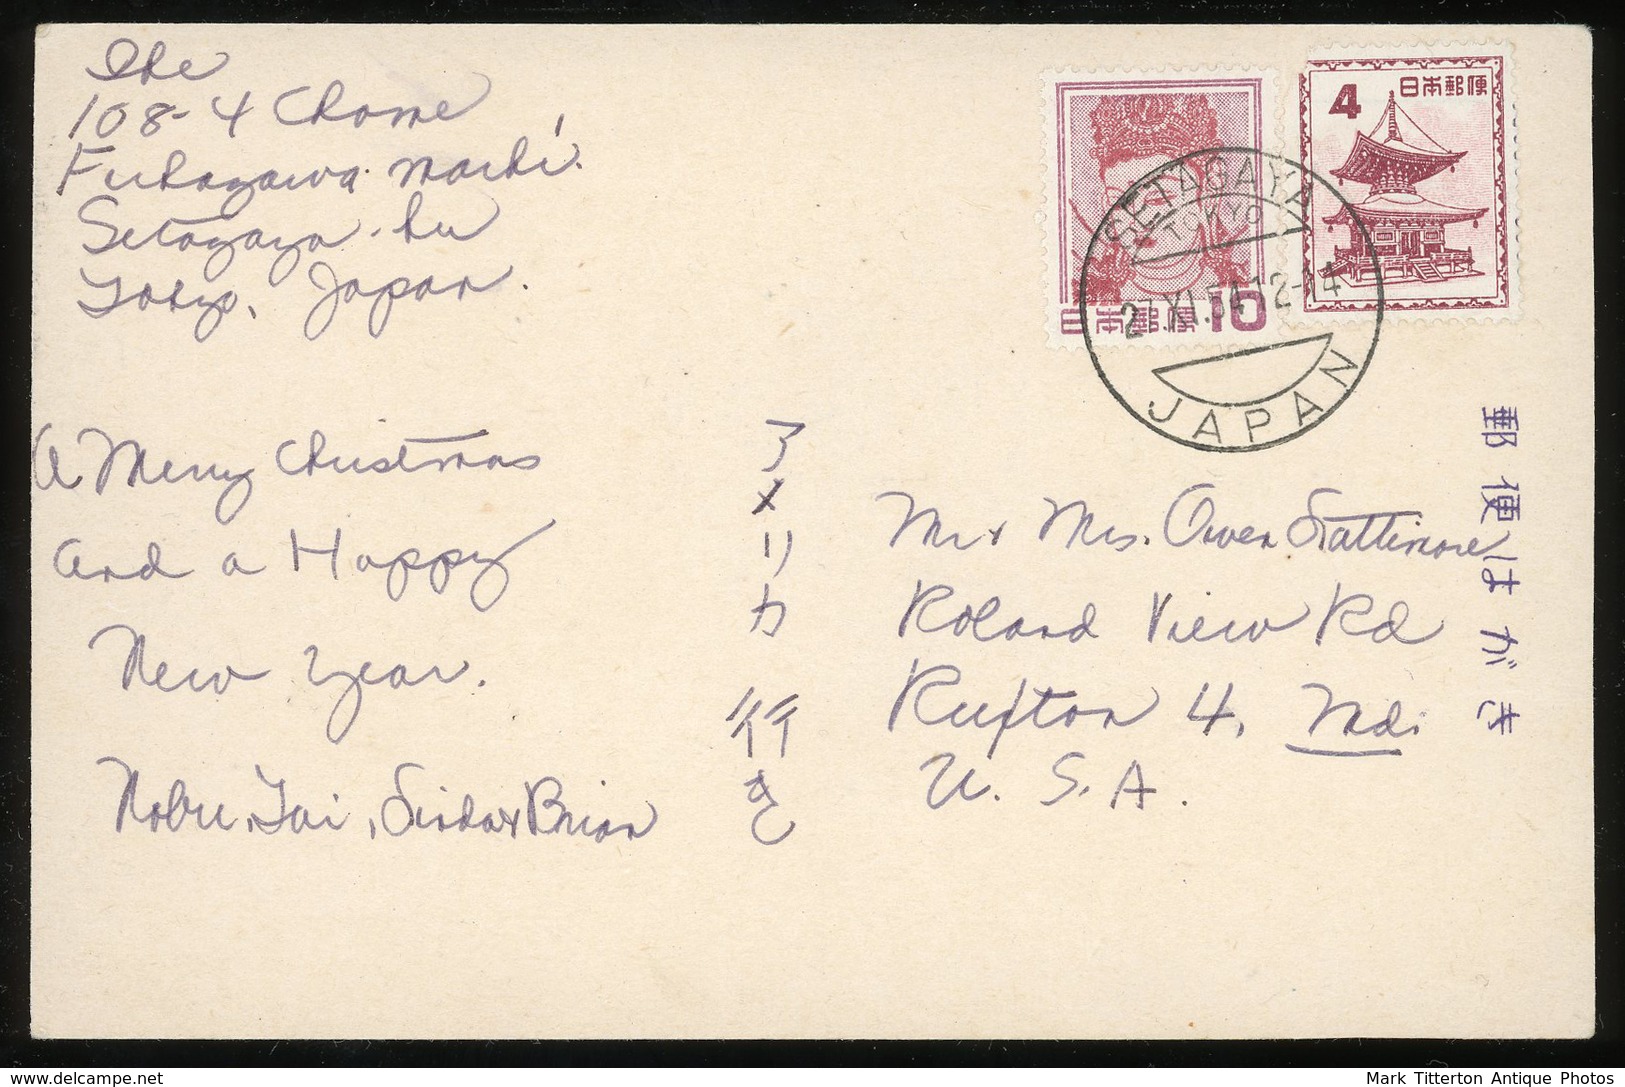 Ike
108-4 Chome
Fukazawa-machi.
Setagaya-ku
Tokyo, Japan.
A Merry Christmas
and a Happy
New Year.
Nobu, Tai, Linda & Brian
アメリカ行き
4 日本郵便
日本郵便 10
SETAGAYA
TOKYO
27.XI.54 12-14
JAPAN
郵便はがき
Mr & Mrs. Owen Lattimore
Roland View Rd
Ruxton 4, Md.
U. S. A.
delcampe.net
Mark Titterton Antique Photos